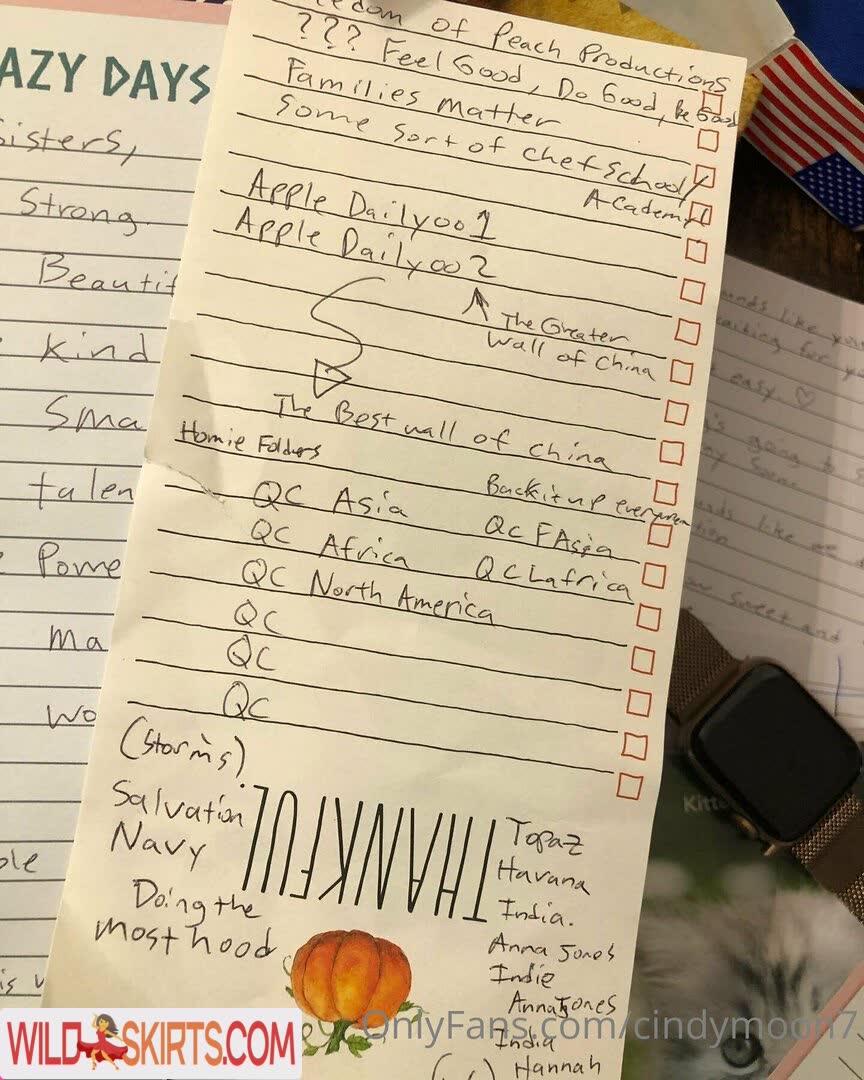 AZY DAYS
Sisters,
Strong
Beautif
kind
Sma
talen
Powe
ma
wo
ole
is
edom of Peach Productions
??? Feel Good, Do Good, be Good
Families matter
Some sort of chef school/
Academy
Apple Daily001
Apple Daily002
The Greater
Wall of China
The Best wall of china
Homie Folders
Back it up everyone
QC Asia
QC FAsia
QC Africa
QC LAfrica
QC North America
QC
QC
QC
(Storms)
Salvation
Navy
Doing the
most hood
THANKFUL
Topaz
Havana
India.
Anna Jones
Indie
Anna Jones
India
Hannah
ands like you
waiting for yo
easy. ♡
going to
soon.
ands like
sweet and
Kitte
WILDSKIRTS.COM
OnlyFans.com/cindymoon7